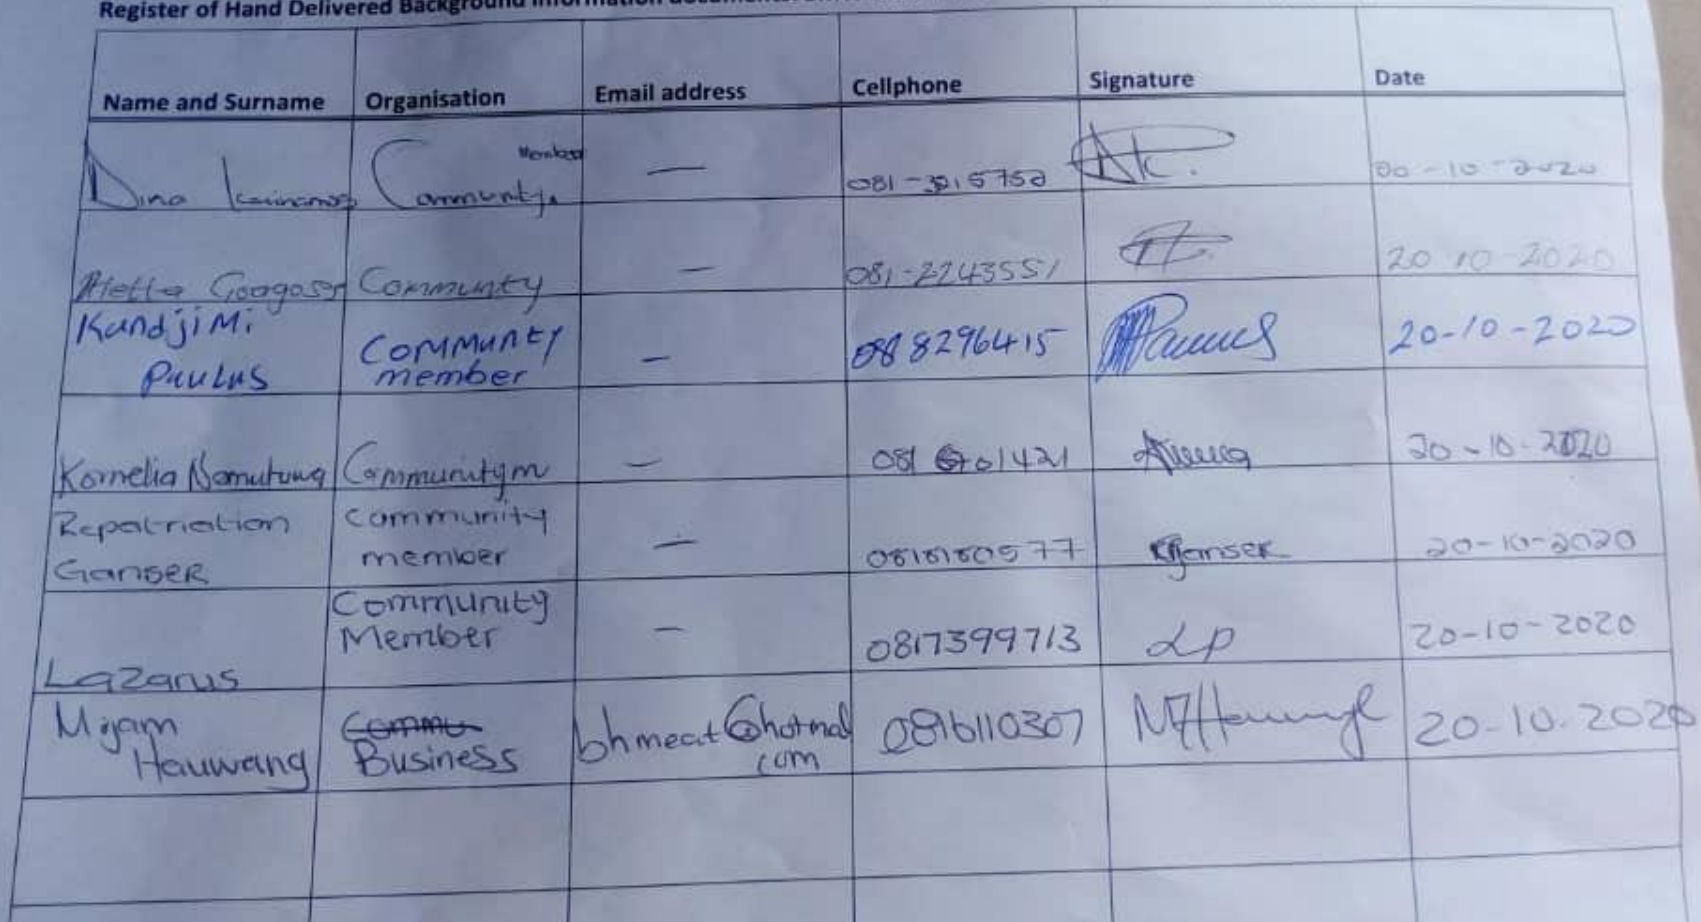 Register of Hand Delivered Background Information documents
Name and Surname Organisation Email address Cellphone Signature Date
Dina Community Member — 081- 00-10-2020
Community — 081-2243551 20 10 2020
Kundjimi Paulus Community member — 8296415 20-10-2020
Kornelia Namutuwa Communitym — 081 01421 20-10-2020
Repatriation Ganser Community member — 0818180577 Ganser 20-10-2020
Lazarus Community Member — 0817399713 LP 20-10-2020
Mijam Hauwanga Commu Business bhmeat@hotmal com 0816110307 20-10-2020